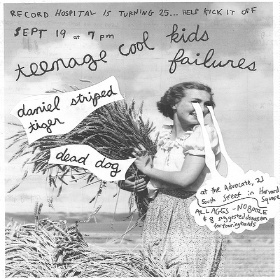 RECORD HOSPITAL IS TURNING 25... HELP KICK IT OFF
SEPT 19 at 7 pm
teenage cool kids
failures
daniel striped
tiger
dead dog
at the Advocate, 21
South Street in Harvard
Square
ALL AGES - NO BOOZE
$ 8 suggested donation
for touring bands